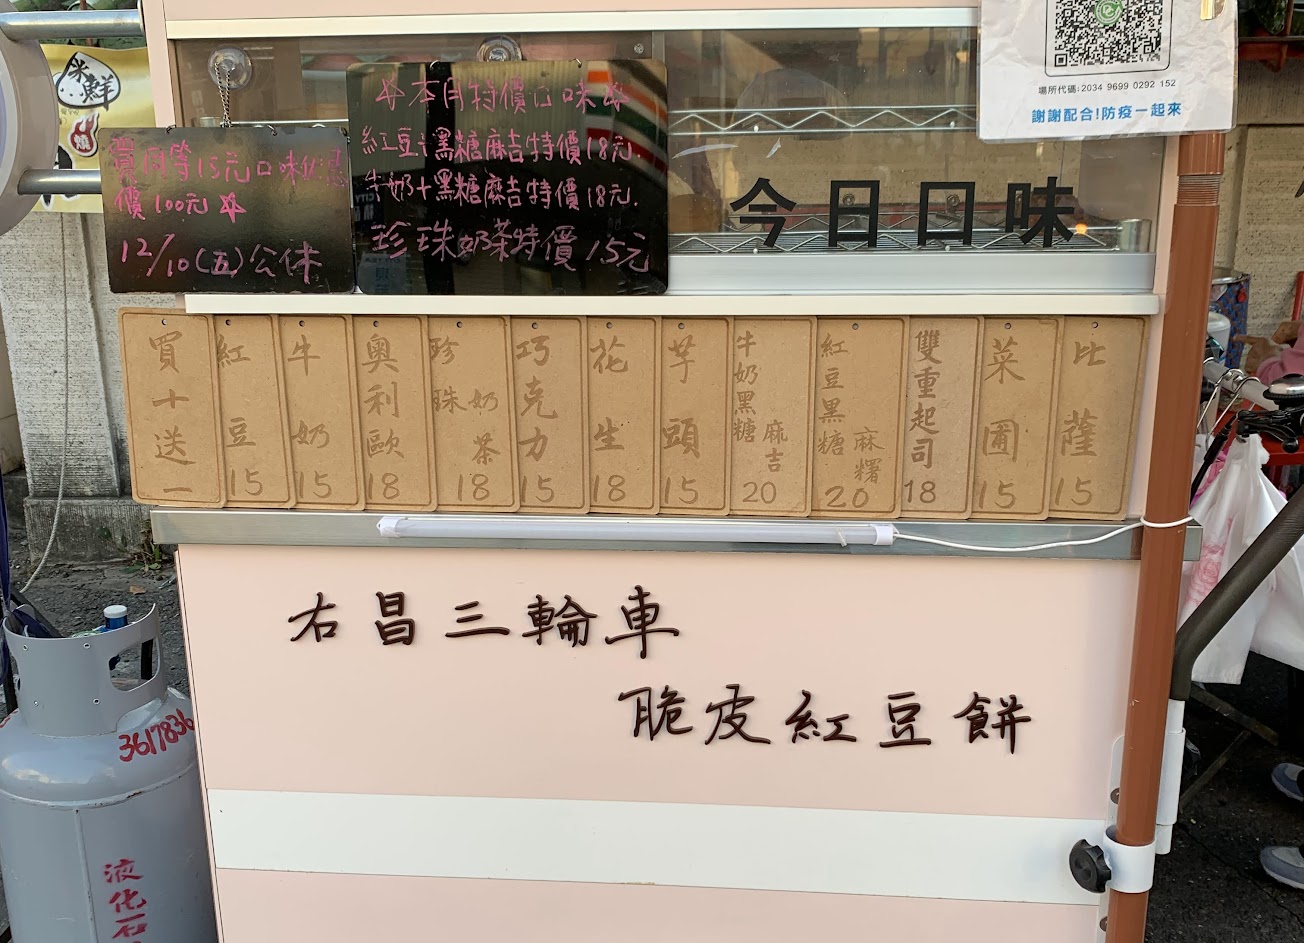 米鮮
燒
買同等15元口味優惠
價100元☆
12/10(五)公休
☆本月特價口味☆
紅豆+黑糖麻吉特價18元.
牛奶+黑糖麻吉特價18元.
珍珠奶茶特價15元
場所代碼:2034 9699 0292 152
謝謝配合!防疫一起來
今日口味
買十送一
紅豆15
牛奶15
奧利歐18
珍珠奶茶18
巧克力15
花生18
芋頭15
牛奶黑糖麻吉20
紅豆黑糖麻糬20
雙重起司18
菜圃15
比薩15
右昌三輪車
脆皮紅豆餅
3617836
液化石